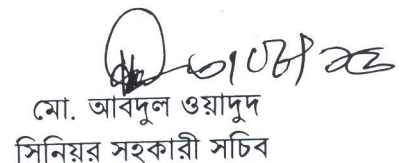 মো. আবদুল ওয়াদুদ
সিনিয়র সহকারী সচিব